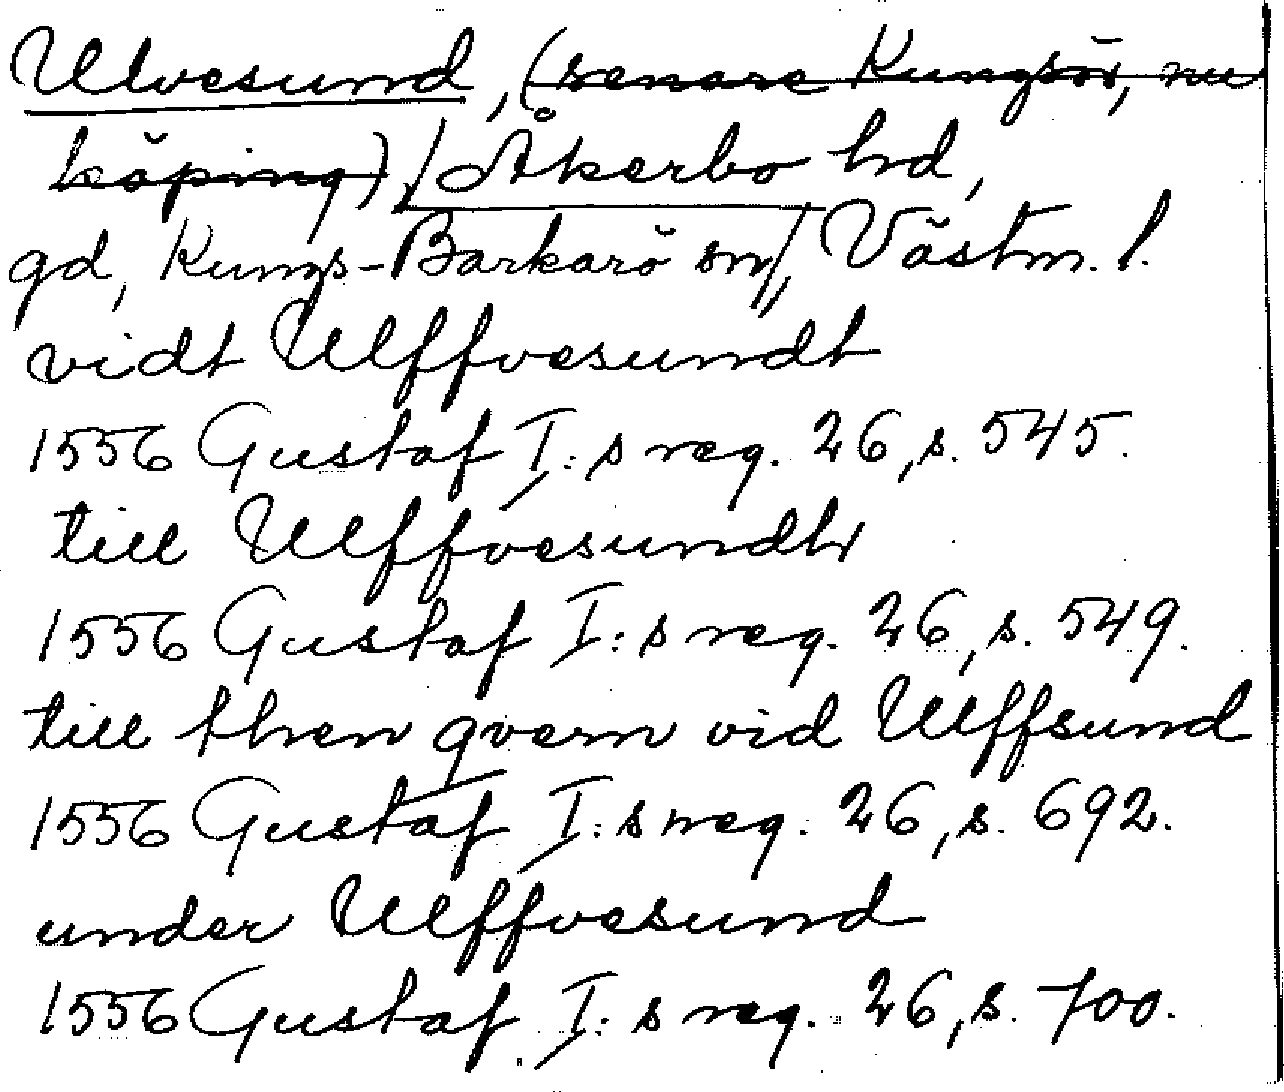 Ulvesund, (senare Kungsör, nu
köping), / Åkerbo hd,
gd, Kungs-Barkarö sn/, Västm. l.
vidt Ulffvesundt
1556 Gustaf I:s reg. 26, s. 545.
till Ulffvesundh
1556 Gustaf I:s reg. 26, s. 549.
till thren qvern vid Ulffsund
1556 Gustaf I:s reg. 26, s. 692.
under Ulffvesund
1556 Gustaf I:s reg. 26, s. 700.